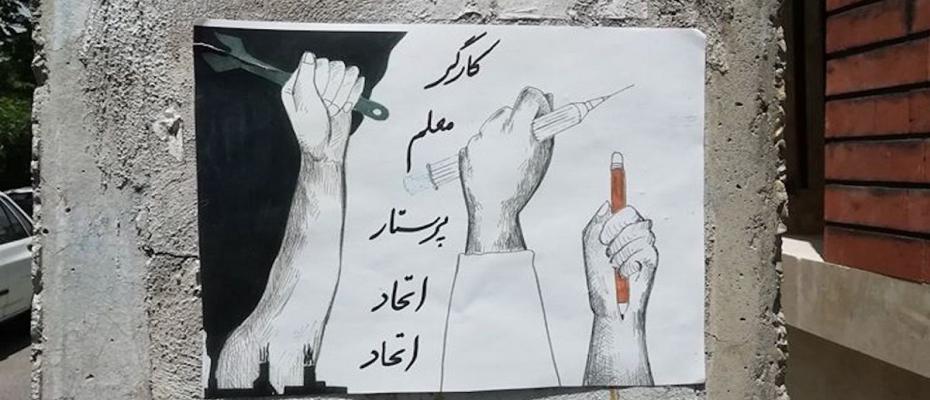 کارگر
معلم
پرستار
اتحاد
اتحاد